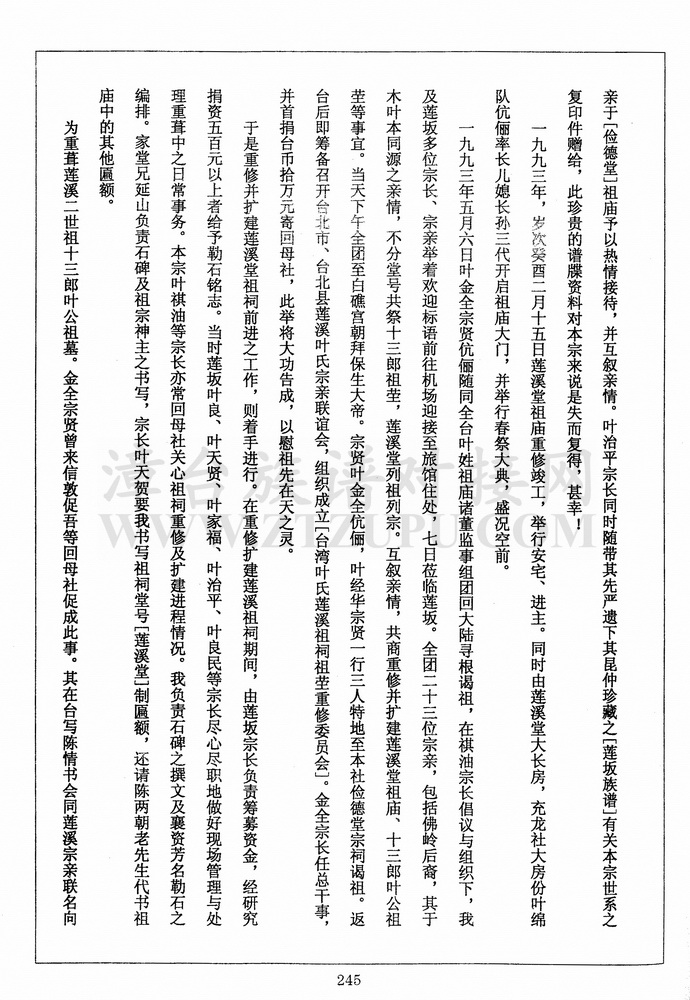 亲于[俭德堂]祖庙予以热情接待，并互叙亲情。叶治平宗长同时随带其先严遗下其昆仲珍藏之[莲坂族谱]有关本宗世系之
复印件赠给，此珍贵的谱牒资料对本宗来说是失而复得，甚幸！
一九九三年，岁次癸酉二月十五日莲溪堂祖庙重修竣工，举行安宅、进主。同时由莲溪堂大长房，充龙社大房份叶绵
队伉俪率长儿媳长孙三代开启祖庙大门，并举行春祭大典，盛况空前。
一九九三年五月六日叶金全宗贤伉俪随同全台叶姓祖庙诸董监事组团回大陆寻根谒祖，在祺油宗长倡议与组织下，我
及莲坂多位宗长、宗亲举着欢迎标语前往机场迎接至旅馆住处，七日莅临莲坂。全团二十三位宗亲，包括佛岭后裔，其于
木叶本同源之亲情，不分堂号共祭十三郎祖茔，莲溪堂列祖列宗。互叙亲情，共商重修并扩建莲溪堂祖庙、十三郎叶公祖
茔等事宜。当天下午全团至白礁宫朝拜保生大帝。宗贤叶金全伉俪，叶经华宗贤一行三人特地至本社俭德堂宗祠谒祖。返
台后即筹备召开台北市、台北县莲溪叶氏宗亲联谊会，组织成立[台湾叶氏莲溪祖祠祖茔重修委员会]。金全宗长任总干事，
并首捐台币拾万元寄回母社，此举将大功告成，以慰祖先在天之灵。
于是重修并扩建莲溪堂祖祠前进之工作，则着手进行。在重修扩建莲溪祖祠期间，由莲坂宗长负责筹募资金，经研究
捐资五百元以上者给予勒石铭志。当时莲坂叶良、叶天贤、叶家福、叶治平、叶良民等宗长尽心尽职地做好现场管理与处
理重葺中之日常事务。本宗叶祺油等宗长亦常回母社关心祖祠重修及扩建进程情况。我负责石碑之撰文及襄资芳名勒石之
编排。家堂兄延山负责石碑及祖宗神主之书写，宗长叶天贺要我书写祖祠堂号[莲溪堂]制匾额，还请陈两朝老先生代书祖
庙中的其他匾额。
为重葺莲溪二世祖十三郎叶公祖墓。金全宗贤曾来信敦促吾等回母社促成此事。其在台写陈情书会同莲溪宗亲联名向
245
漳台族谱对接网
WWW.ZTZUPU.COM